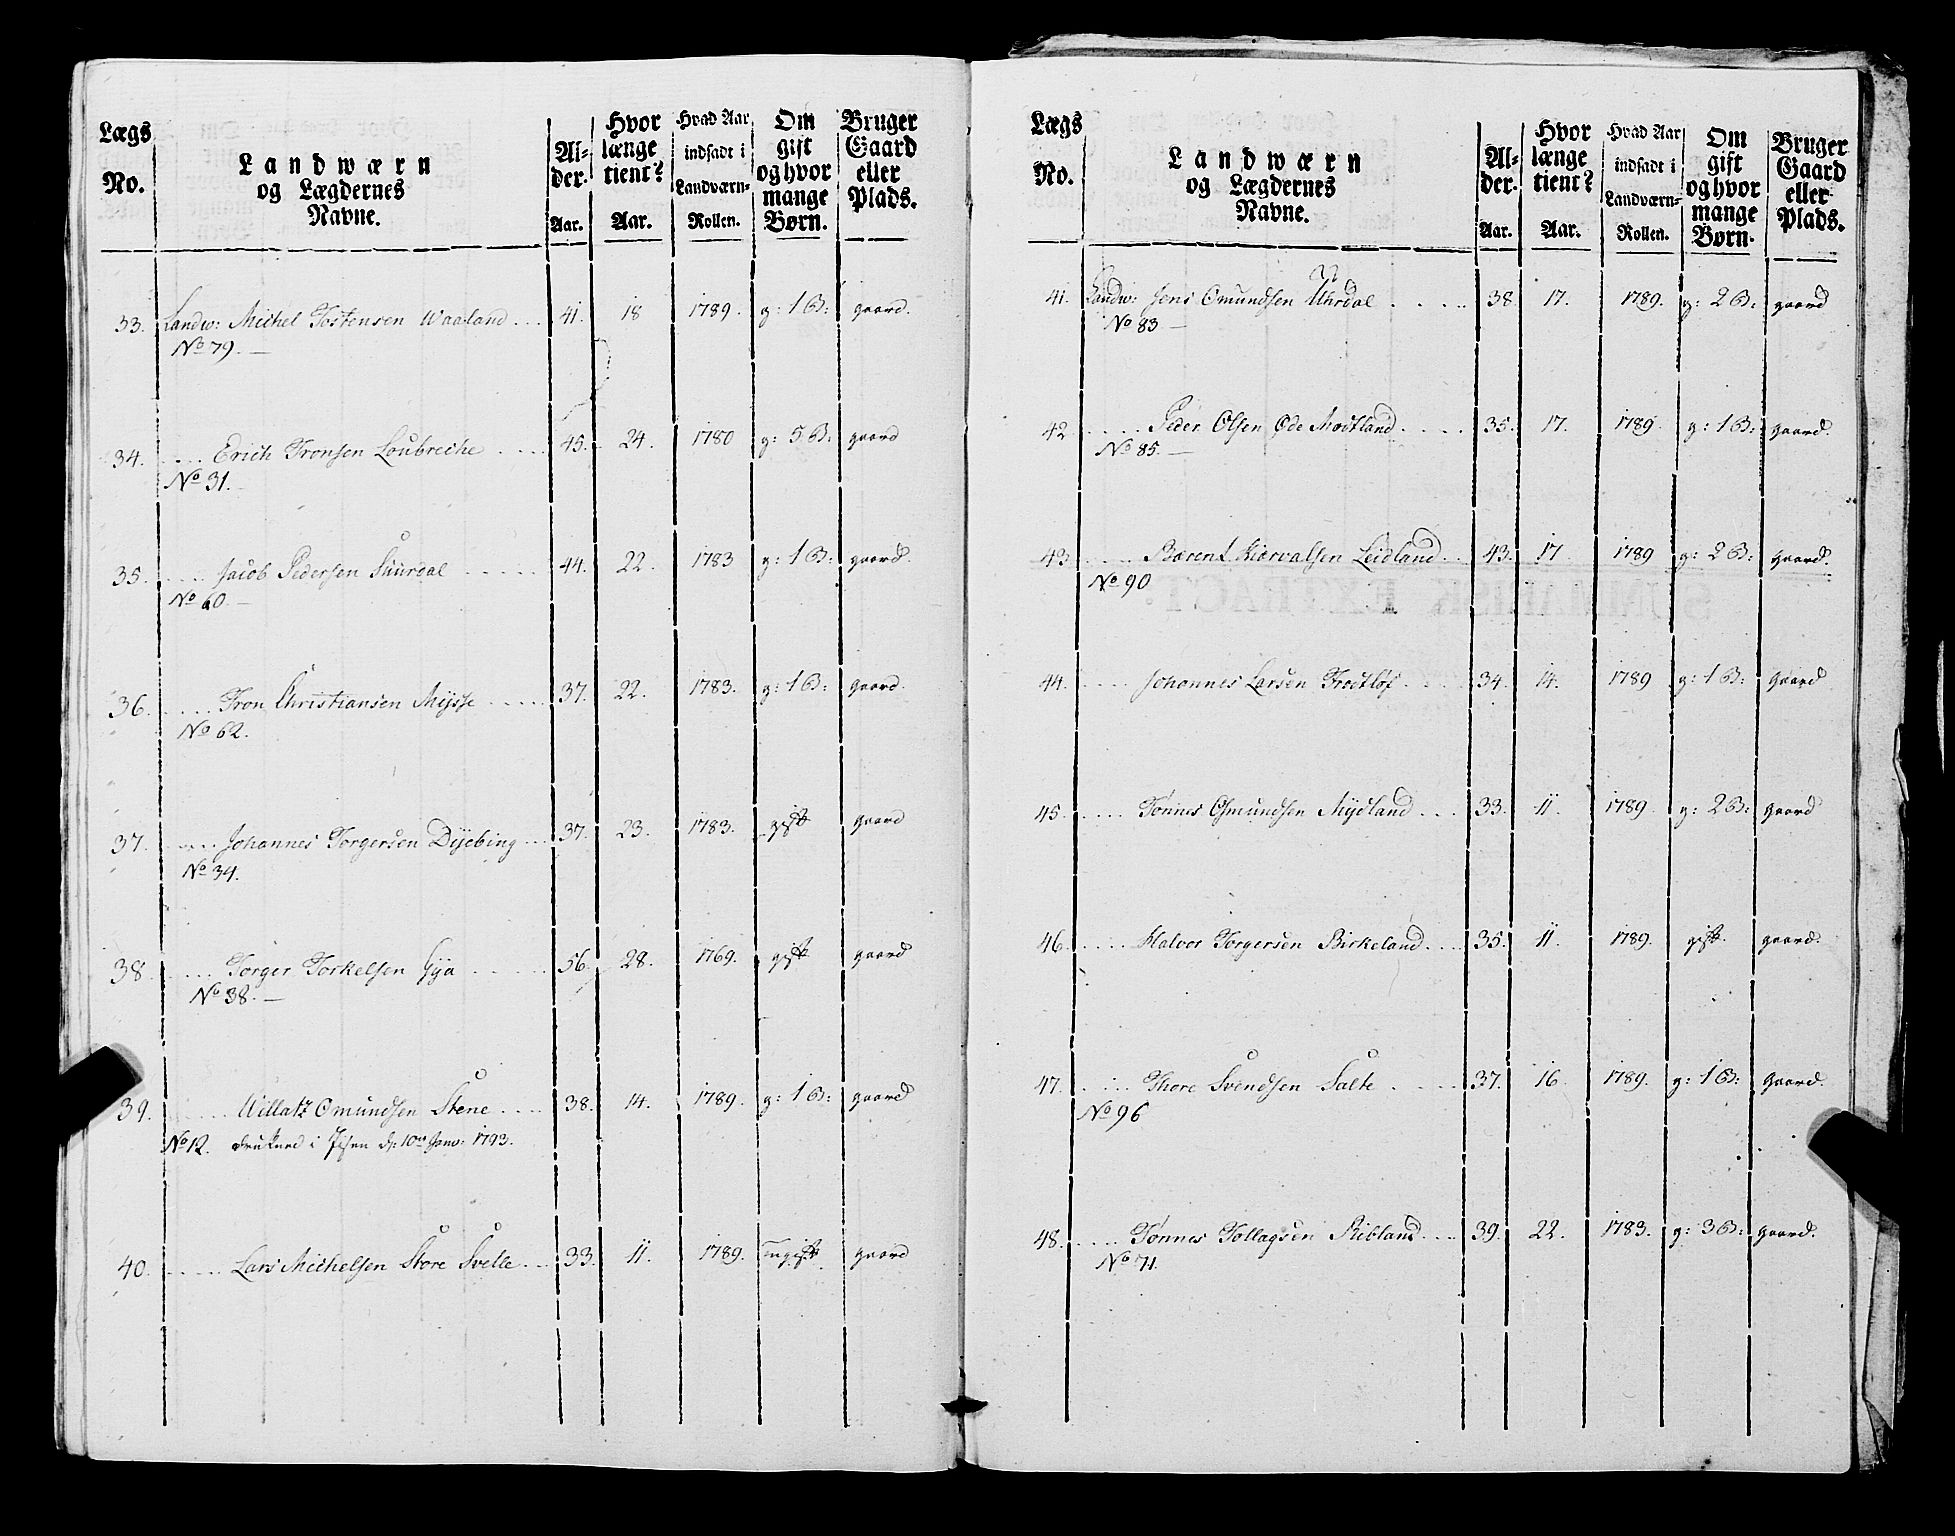 Lægs No. Landwærn og Lægdernes Navne. Alder. Aar. Hvor længe tient? Aar. Hvad Aar indsadt i Landværn-Rollen. Om gift og hvor mange Børn. Bruger Gaard eller Plads.
33. Landw: Michel Tostensen Waaland 41. 18 1789. g: 1 B: gaard.
No 79.
34. Erich Tronsen Loubreche 45. 24. 1780 g: 5 B: gaard
No 31.
35. Jacob Pedersen Suurdal 44. 22. 1783 g: 1 B: gaard.
No 60.
36. Tron Christiansen Mysse 37. 22. 1783. g: 1 B: gaard.
No 62.
37. Johannes Torgersen Dyebing 37. 23. 1783. gift gaard
No 34.
38. Torger Torkelsen Gya 56. 28. 1769. gift gaard
No 38.
39. Willatz Omundsen Stene 38. 14. 1789. g: 1 B: gaard
No 12. drukned i Isen d: 10de Janv: 1793.
40. Lars Michelsen Store Svelle 33. 11. 1789. ungift gaard
Lægs No. Landwærn og Lægdernes Navne. Alder. Aar. Hvor længe tient? Aar. Hvad Aar indsadt i Landværn-Rollen. Om gift og hvor mange Børn. Bruger Gaard eller Plads.
41. Landw: Jens Omundsen Uhrdal 38 17. 1789. g: 2 B: gaard
No 83
42. Peder Olsen Øde Modtland 35. 17. 1789. g: 1 B: gaard.
No 85.
43. Bærent Kiervalsen Leidland 43. 17 1789 g: 2 B: gaard.
No 90
44. Johannes Larsen Frøtløf 34. 14. 1789 g: 1 B: gaard
45. Tønnes Osmundsen Mydland 33. 11. 1789. g: 2 B: gaard
46. Halvor Torgersen Birkeland 35. 11. 1789. gift. gaard.
47. Thore Svendsen Salte 37. 16 1789. g: 1 B: gaard.
No 96
48. Tønnes Tollagsen Ribland 39. 22. 1783. g: 3 B: gaard.
No 71.